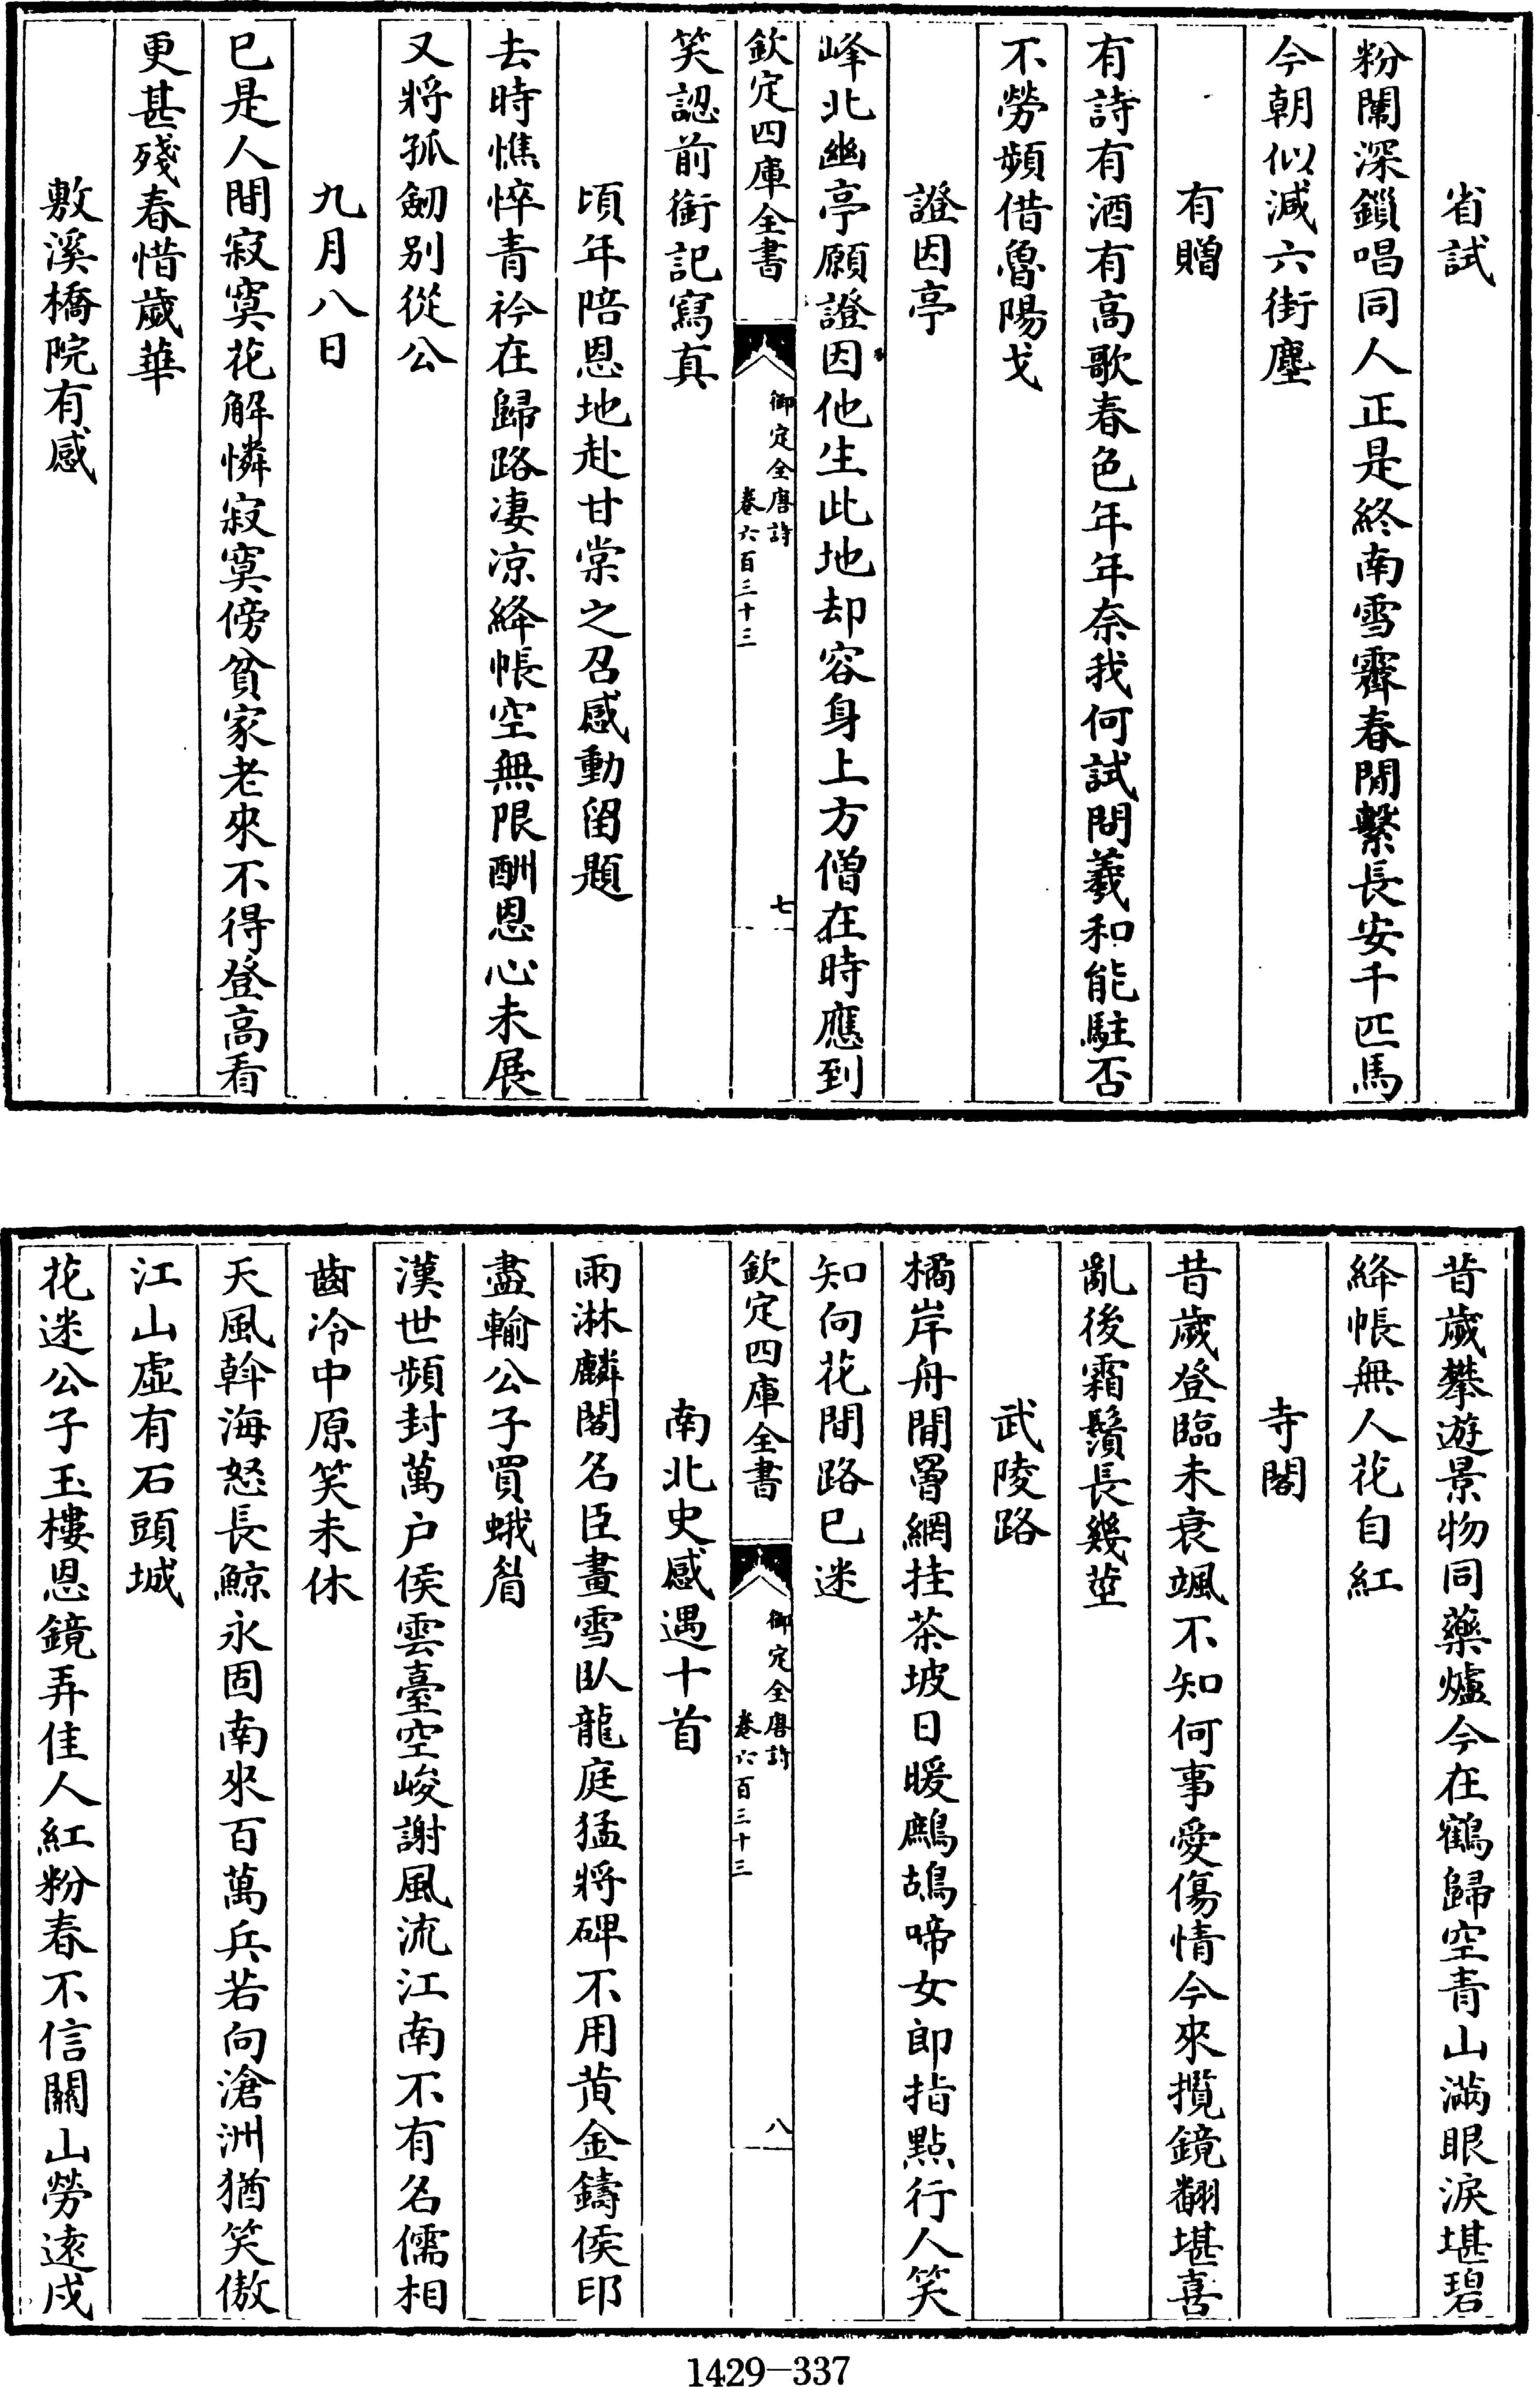 省試
粉闈深鎖唱同人正是終南雪霽春閒繫長安千匹馬
今朝似減六街塵
有贈
有詩有酒有高歌春色年年奈我何試問羲和能駐否
不勞頻借魯陽戈
證因亭
峰北幽亭願證因他生此地却容身上方僧在時應到
欽定四庫全書
御定全唐詩
卷六百三十三
七
笑認前銜記寫真
頃年陪恩地赴甘棠之召感動留題
去時憔悴青衿在歸路凄凉絳帳空無限酬恩心未展
又將孤劒别從公
九月八日
已是人間寂寞花解憐寂寞傍貧家老來不得登高看
更甚殘春惜歲華
敷溪橋院有感
昔歲攀遊景物同藥爐今在鶴歸空青山滿眼淚堪碧
絳帳無人花自紅
寺閣
昔歲登臨未衰颯不知何事愛傷情今來攬鏡翻堪喜
亂後霜鬚長幾莖
武陵路
橘岸舟閒罾網挂茶坡日暖鷓鴣啼女郎指點行人笑
知向花間路已迷
欽定四庫全書
御定全唐詩
卷六百三十三
八
南北史感遇十首
雨淋麟閣名臣畫雪臥龍庭猛將碑不用黄金鑄侯印
盡輸公子買蛾眉
漢世頻封萬户侯雲臺空峻謝風流江南不有名儒相
齒冷中原笑未休
天風斡海怒長鯨永固南來百萬兵若向滄洲猶笑傲
江山虛有石頭城
花迷公子玉樓恩鏡弄佳人紅粉春不信關山勞遠戍
1429-337